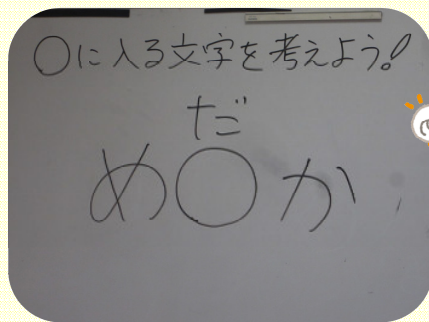 ○に入る文字を考えよう!
だ
め○か